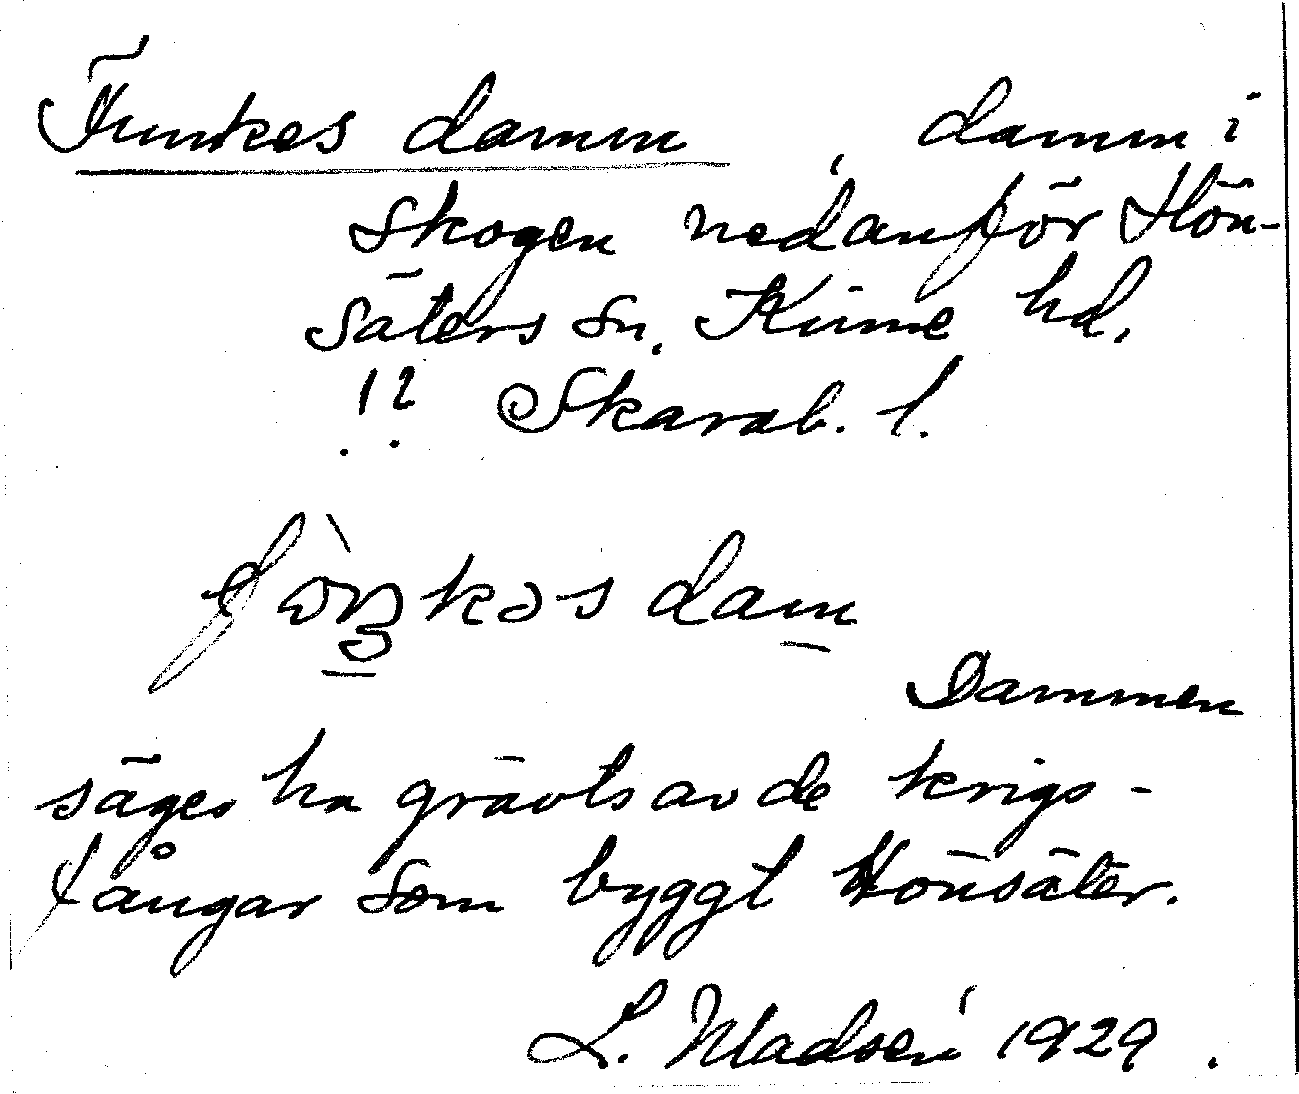 Funkes damm, damm i
skogen nedanför Hön-
säters sn. Kinne hd,
!? Skarab. l.
fòŋkəs dam
Dammen
säges ha grävts av de krigs-
fångar som byggt Hönsäter.
L. Madsén 1929.